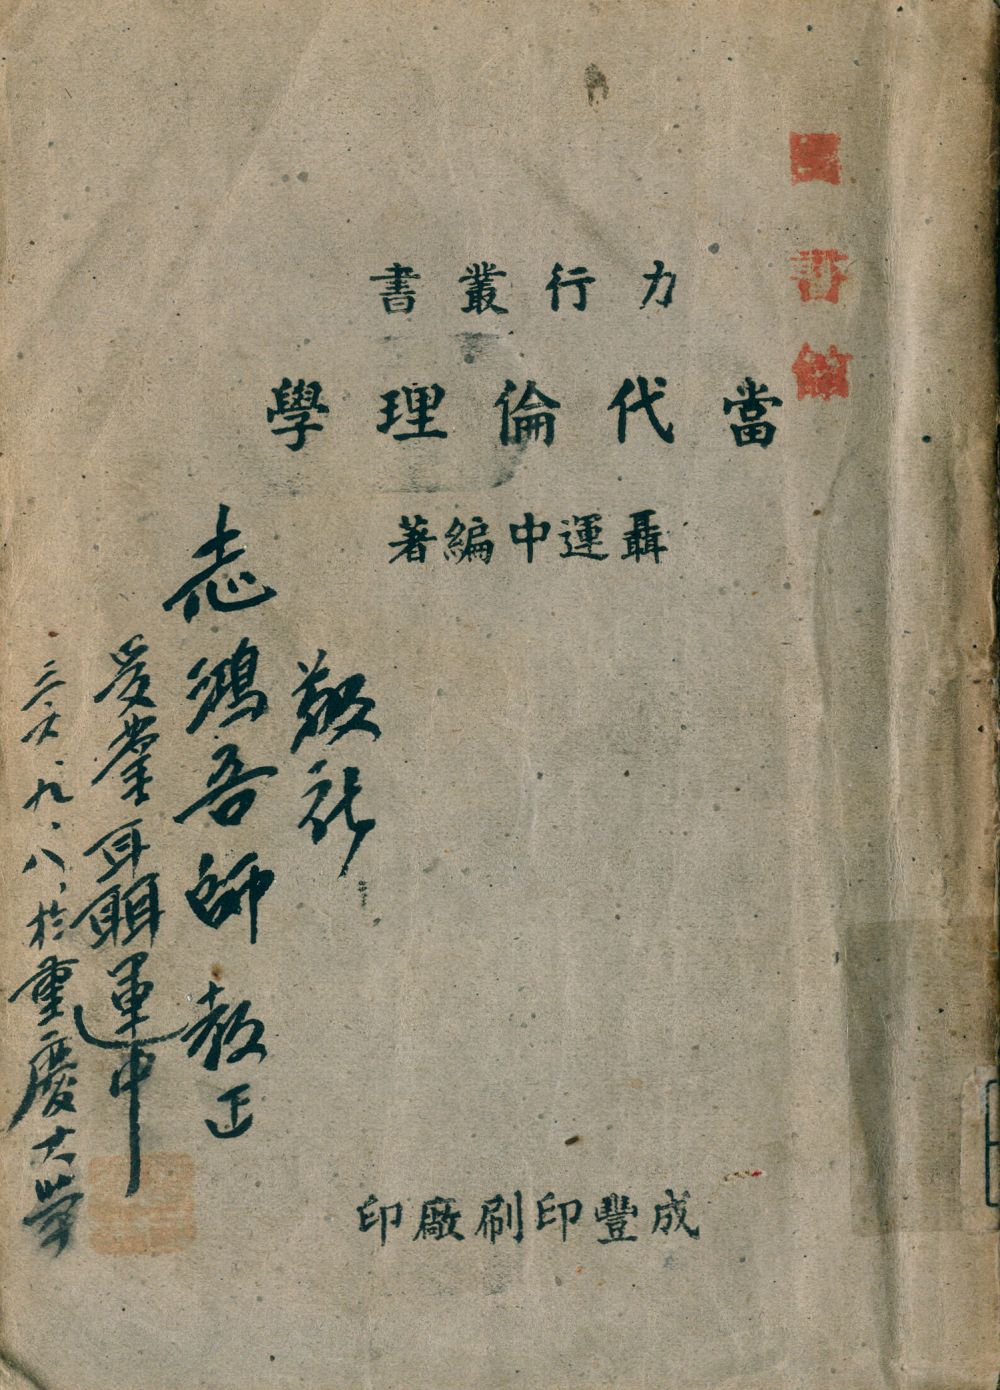 圖書館
力行叢書
當代倫理學
聶運中編著
敬祈
志鴻吾師教正
受業聶運中
三六、九、八、於重慶大學
成豐印刷廠印